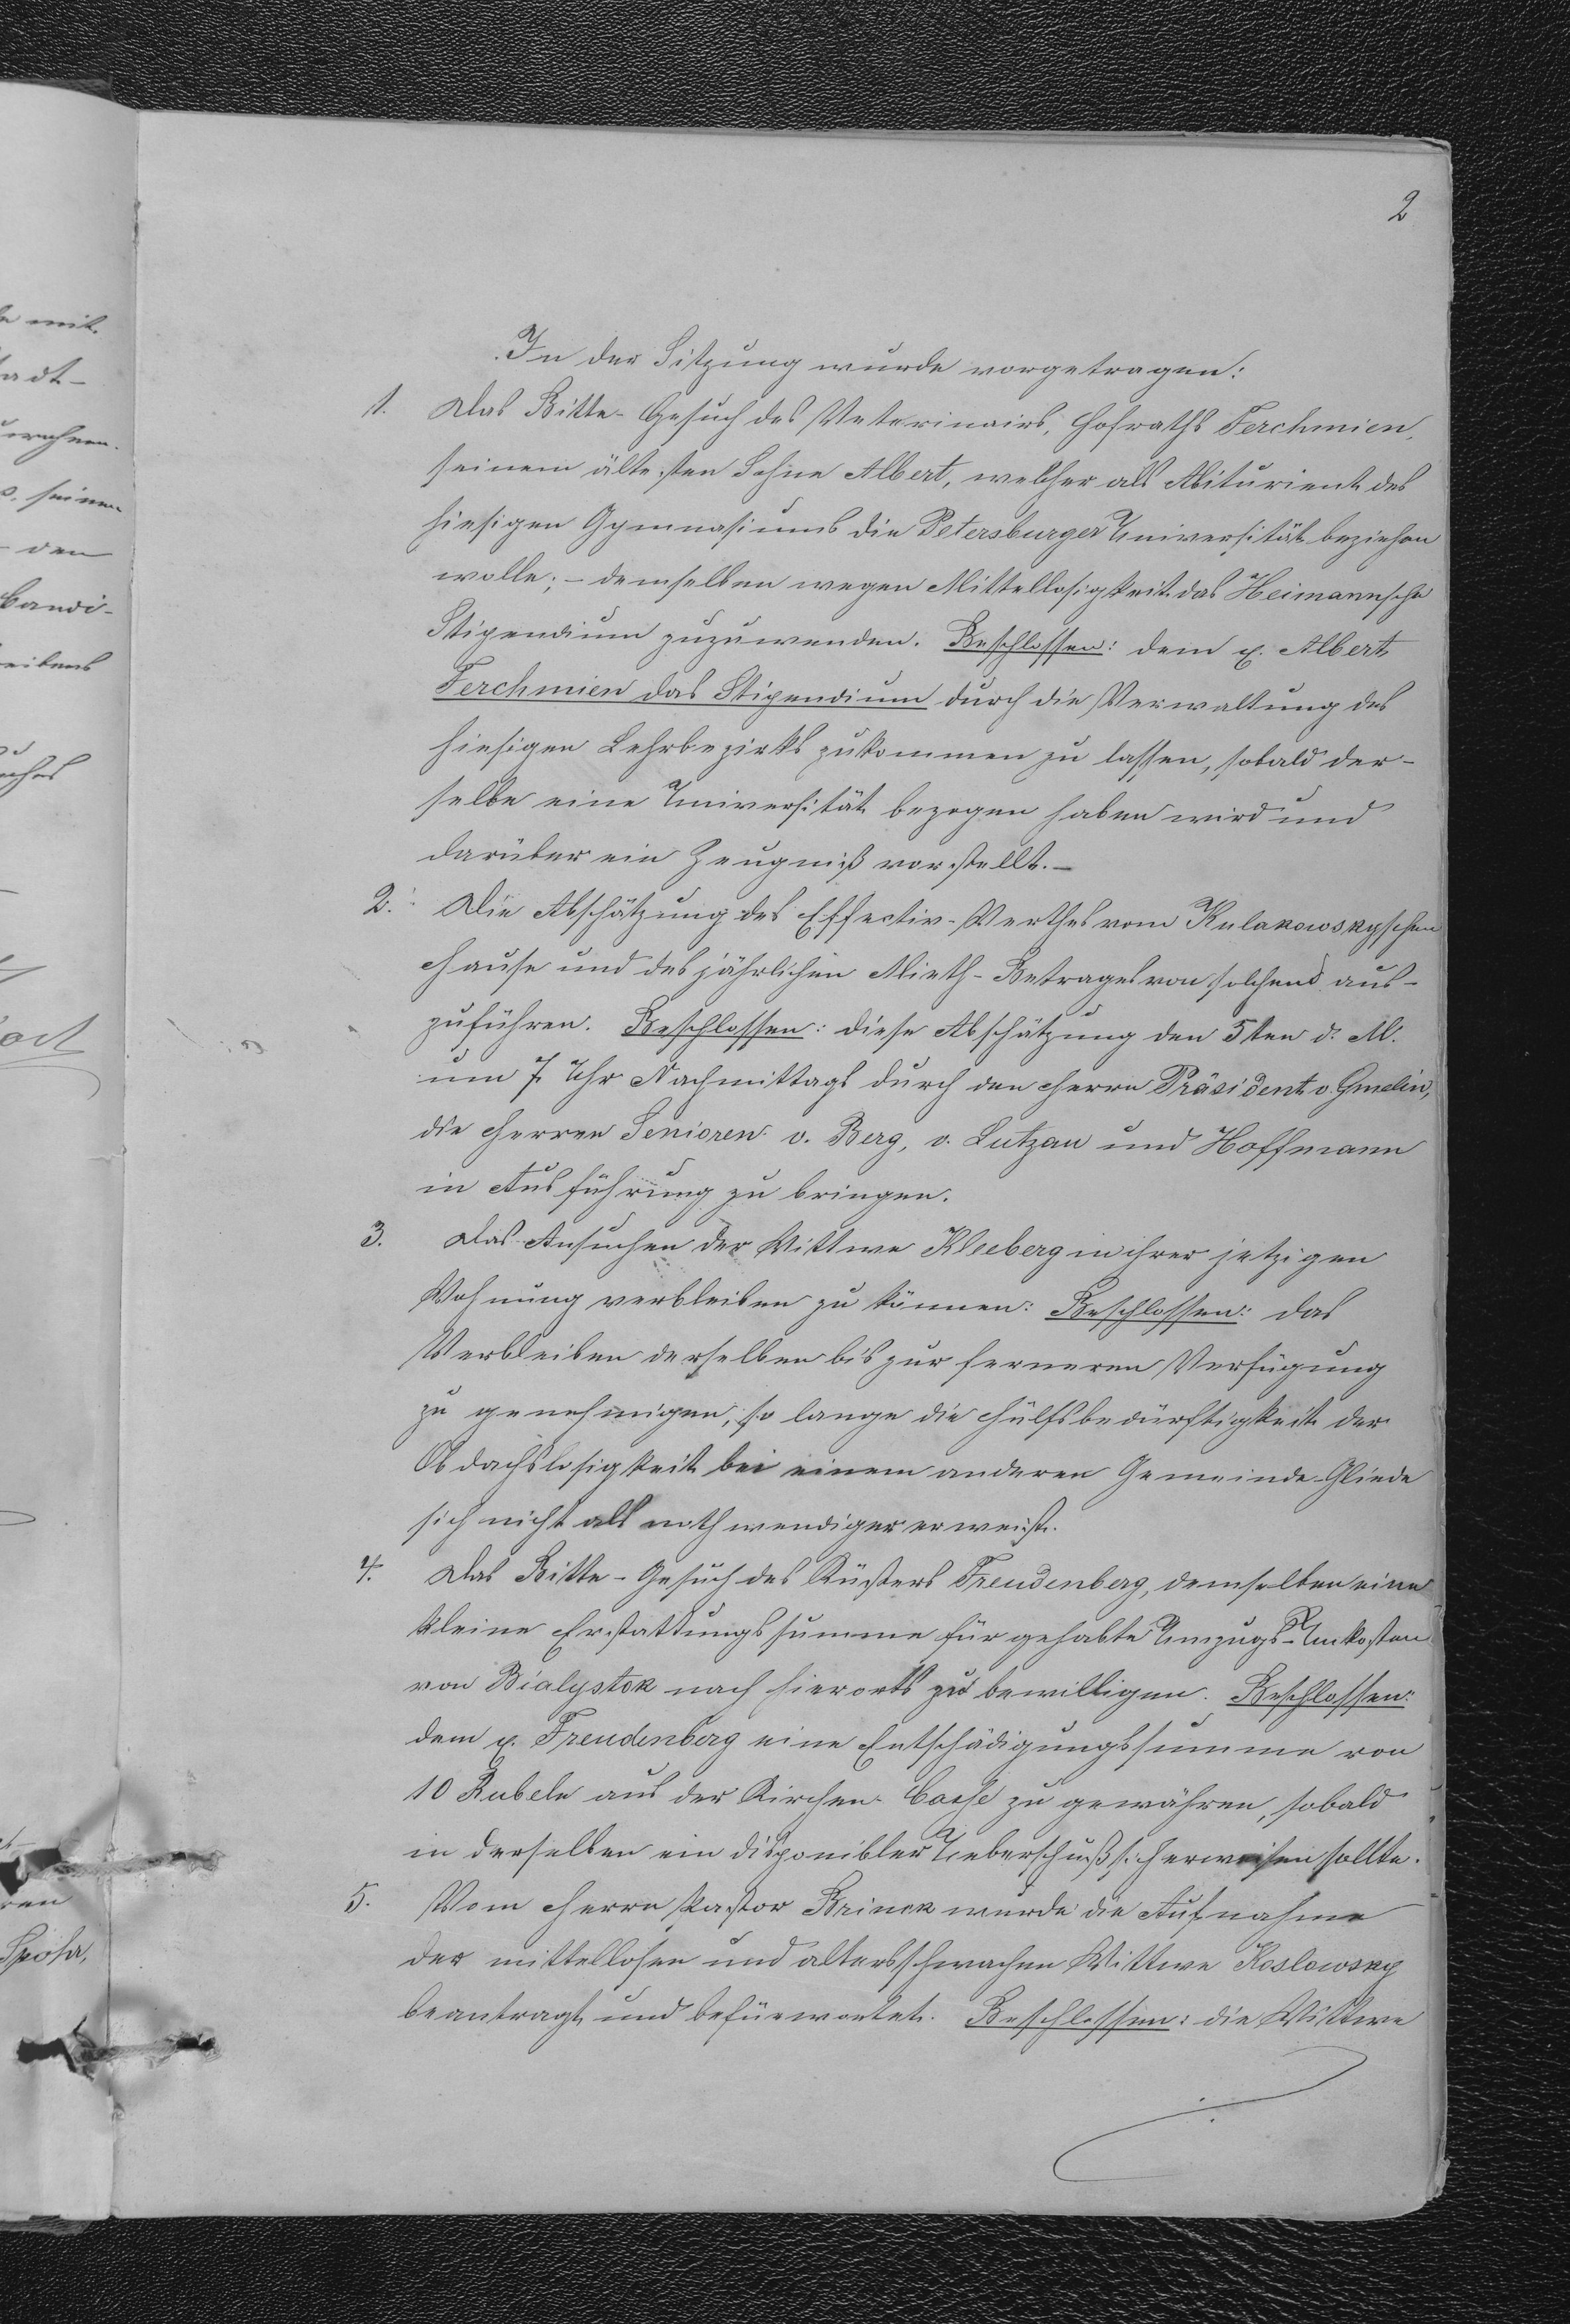 2
In der Sitzung wurde vorgetragen:
1. Das Bitte-Gesuch des Veterinairs, Hofraths Ferchmien,
seinem ältesten Sohne Albert, welcher als Abiturient des
hiesigen Gymnasiums die Petersburger Universität beziehen
wolle; – demselben wegen Mittellosigkeit das Heimannsche
Stipendium zuzuwenden. Beschlossen: dem p. Albert
Ferchmien das Stipendium durch die Verwaltung des
hiesigen Lehrbezirks zukommen zu lassen, sobald der-
selbe eine Universität bezogen haben wird und
darüber ein Zeugniß vorstellt. –
2. Die Abschätzung des Effectiv-Werthes vom Kulakowskyschen
Hause und des jährlichen Mieth-Betrages von solchem aus-
zuführen. Beschlossen: diese Abschätzung den 5ten d. M.
um 7 Uhr Nachmittags durch den Herrn Präsident v. Gmelin,
die Herren Senioren v. Berg, v. Lutzau und Hoffmann
in Ausführung zu bringen.
3. Das Ansuchen der Wittwe Kleeberg in ihrer jetzigen
Wohnung verbleiben zu können: Beschlossen: das
Verbleiben derselben bis zur ferneren Verfügung
zu genehmigen, so lange die Hülfsbedürftigkeit der
Obdachslosigkeit bei einem anderen Gemeinde-Gliede
sich nicht als nothwendiger erweist.
4. Das Bitte-Gesuch des Küsters Freudenberg, demselben eine
kleine Erstattungssumme für gehabte Umzugs-Unkosten
von Bialystok nach hierorts zu bewilligen. Beschlossen:
dem p. Freudenberg eine Entschädigungssumme von
10 Rubeln aus der Kirchen-Casse zu gewähren, sobald
in derselben ein disponibler Ueberschuß sich erweisen sollte.
5. Vom Herrn Pastor Brinck wurde die Aufnahme
der mittellosen und altersschwachen Wittwe Koslowsky
beantragt und befürwortet. Beschlossen: die Wittwe